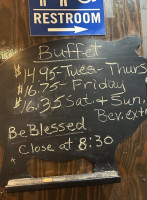 RESTROOM
Buffet
$14.95-Tues-Thurs
$16.75-Friday
$16.35 Sat. & Sun.
Bev. extr
BeBlessed
Close at 8:30